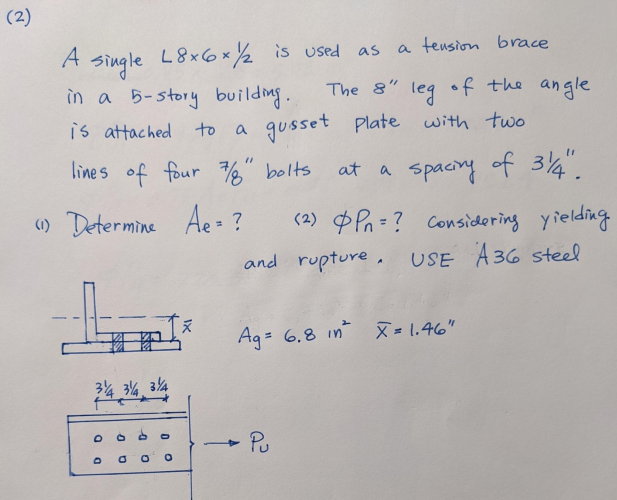 (2)
A single L8×6×½ is used as a tension brace
in a 5-story building. The 8" leg of the angle
is attached to a gusset plate with two
lines of four 7/8" bolts at a spacing of 3¼".
(1) Determine Ae = ? (2) ΦPn = ? Considering yielding
and rupture. USE A36 steel
x̄
Ag = 6.8 in² x̄ = 1.46"
3¼ 3¼ 3¼
Pu